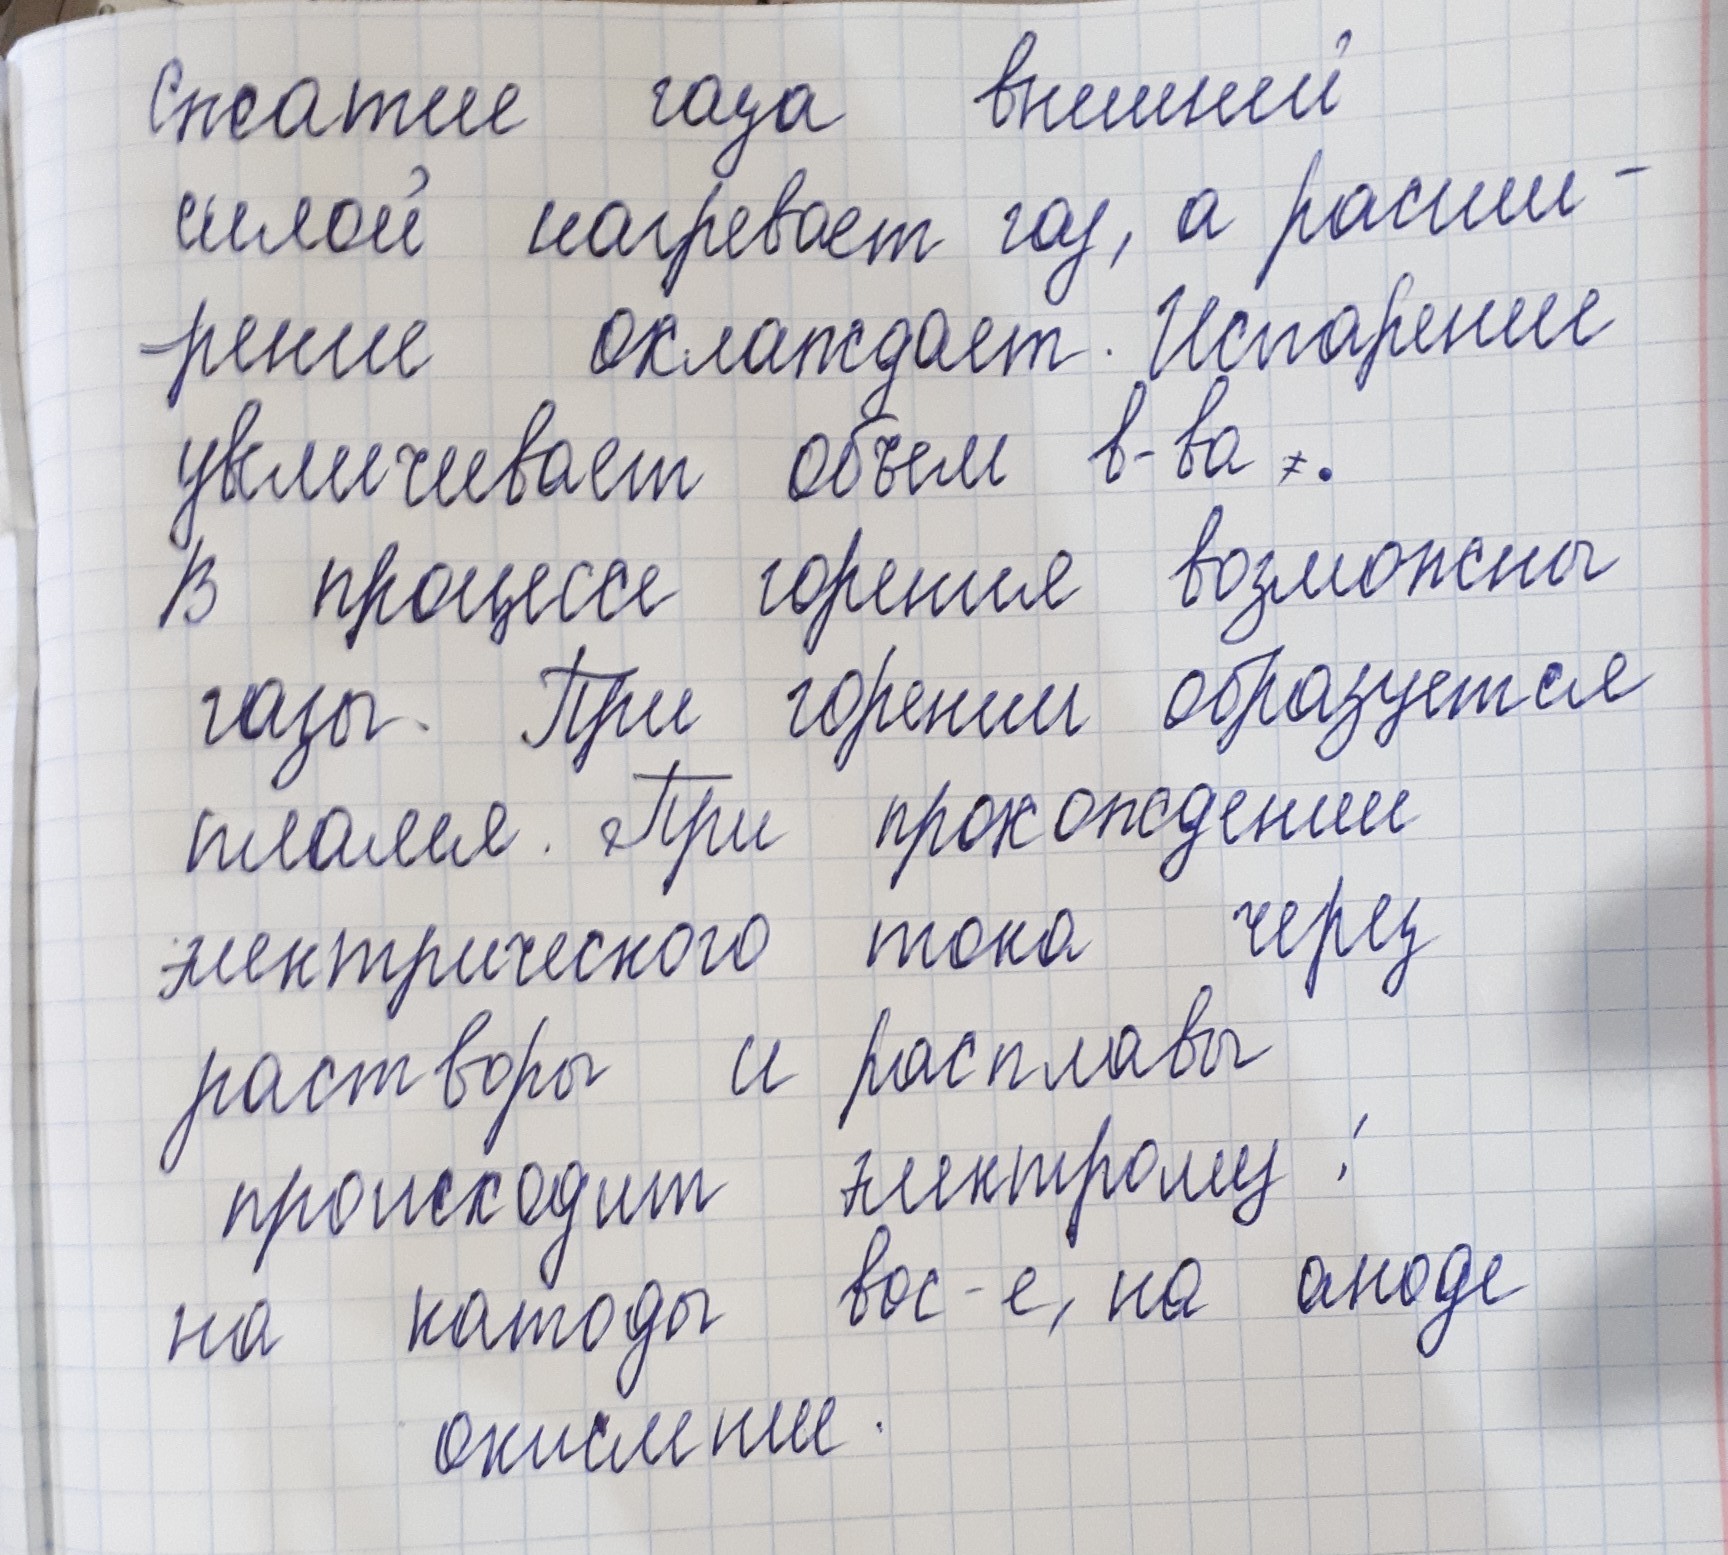 Сжатие газа внешний
силой нагревает газ, а расши-
-рение охлаждает. Испарение
увеличивает объем в-ва.
В процессе горения возможны
газы. При горении образуется
пламя. При прохождении
электрического тока через
растворы и расплавы
происходит электролиз:
на катоды вос-е, на аноде
окисление.